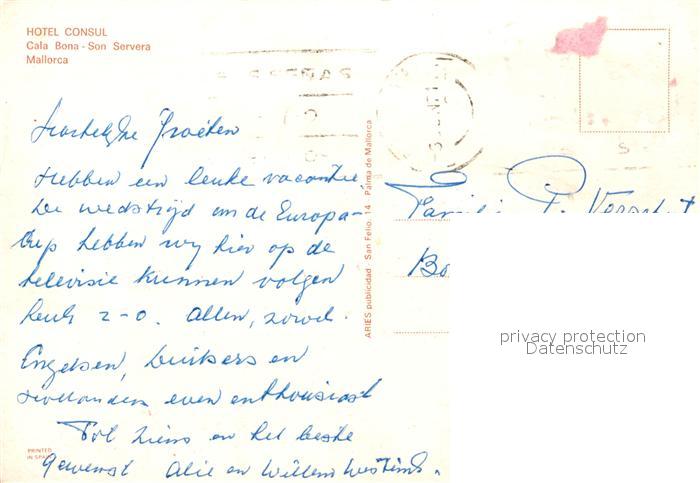 HOTEL CONSUL
Cala Bona - Son Servera
Mallorca
Hartelijke Groeten
Hebben een leuke vacantie.
De wedstrijd om de Europa-
Cup hebben wij hier op de
televisie kunnen volgen
leuk 2-0. Allen, zowel
Engelsen, Duitsers en
Hollanders even enthousiast
Tot ziens en het beste
gewenst Alie en Willem
ARIES publicidad San Felio, 14 Palma de Mallorca
PRINTED
IN SPAIN
Familie P.
Bo
privacy protection
Datenschutz